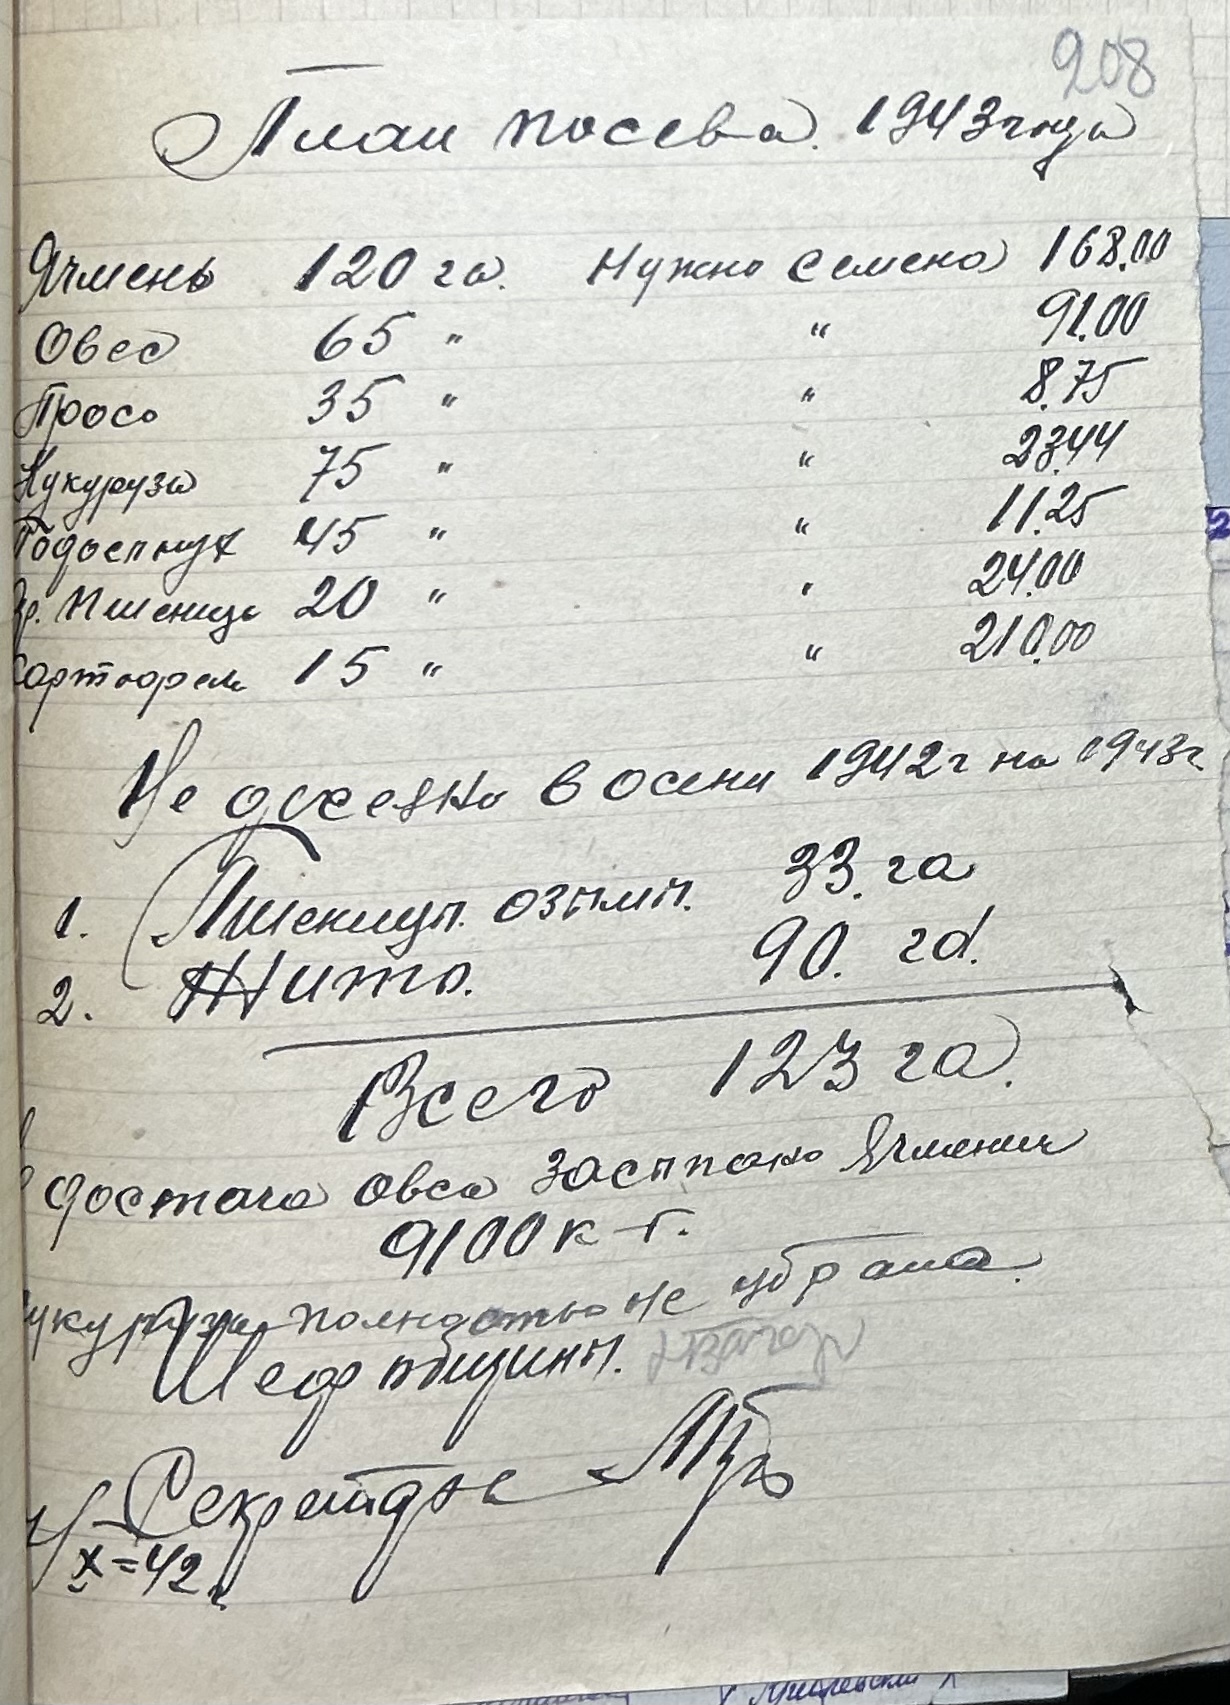 208
План посева 1943 года
Ячмень 120 га. Нужно семена 168.00
Овес 65 " " 91.00
Просо 35 " " 8.75
Кукуруза 75 " " 23.44
Подсолнух 45 " " 11.25
яр. пшеница 20 " " 24.00
Картофель 15 " " 210.00
Не досеяно в осени 1942 г на 1943 г.
1. Пшениця озими. 33. га
2. Жито. 90. га.
Всего 123 га.
достача овса засипано Ячменем
9100 к-г.
кукуруза полностью не убрана.
Шеф общини.
Секретарь
X=42 г.